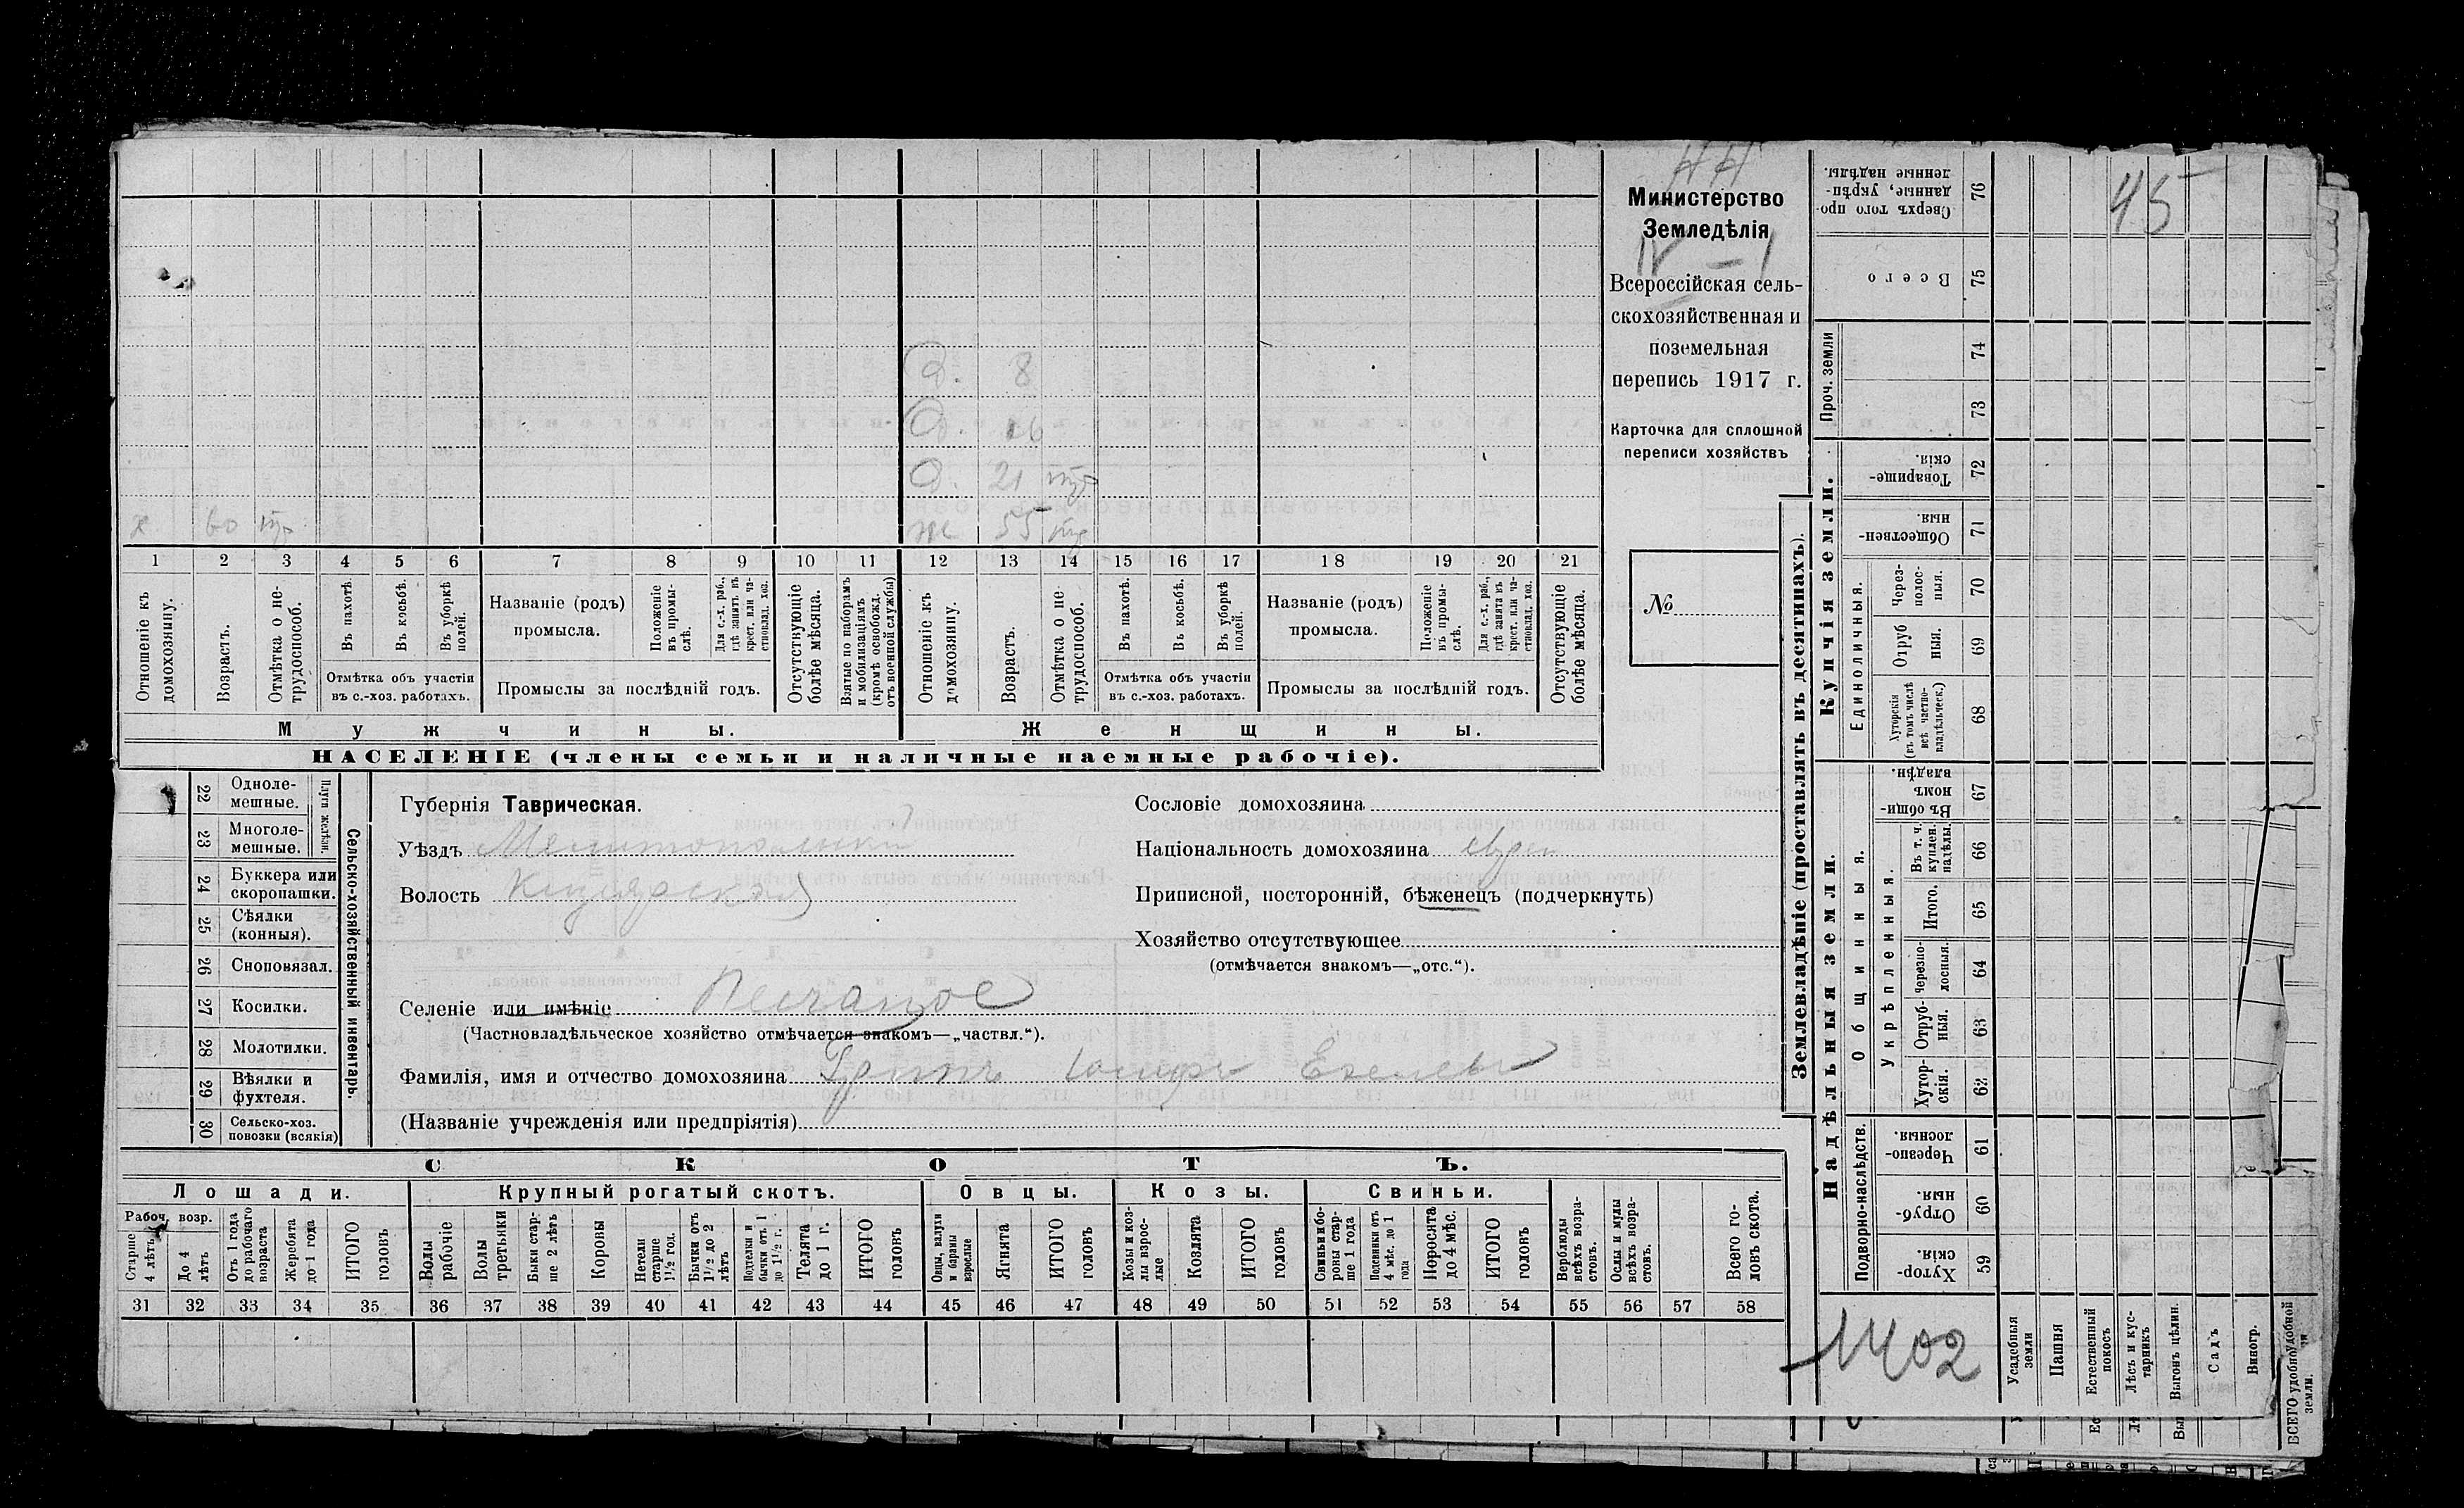 НН
Министерство
Земледѣлія
IV – 1
Всероссійская сель-
скохозяйственная и
поземельная
перепись 1917 г.
Карточка для сплошной
переписи хозяйствъ
№
Д. 8
Д. 16
Д. 21
х 60
ж 55
1 2 3 4 5 6 7 8 9 10 11 12 13 14 15 16 17 18 19 20 21
Отношеніе къ домохозяину.
Возрастъ.
Отмѣтка о не-трудоспособ.
Въ пахотѣ.
Въ косьбѣ.
Въ уборкѣ полей.
Отмѣтка объ участіи
въ с.-хоз. работахъ.
Названіе (родъ)
промысла.
Положеніе въ промы-слѣ.
Для с.-х. раб., гдѣ занятъ въ крест. или ча-стновлад. хоз.
Промыслы за послѣдній годъ.
Отсутствующіе болѣе мѣсяца.
Взятые по наборамъ и мобилизаціямъ (кромѣ освобожд. отъ военной службы)
Отношеніе къ домохозяину.
Возрастъ.
Отмѣтка о не-трудоспособ.
Въ пахотѣ.
Въ косьбѣ.
Въ уборкѣ полей.
Отмѣтка объ участіи
въ с.-хоз. работахъ.
Названіе (родъ)
промысла.
Положеніе въ промы-слѣ.
Для с.-х. раб., гдѣ занята въ крест. или ча-стновлад. хоз.
Промыслы за послѣдній годъ.
Отсутствующіе болѣе мѣсяца.
Мужчины.
Женщины.
НАСЕЛЕНІЕ (члены семьи и наличные наемные рабочіе).
22 Одноле-мешные.
23 Многоле-мешные.
Плуги желѣзн.
24 Буккера или скоропашки.
25 Сѣялки (конныя).
26 Сноповязал.
27 Косилки.
28 Молотилки.
29 Вѣялки и фухтеля.
30 Сельско-хоз. повозки (всякія)
Сельско-хозяйственный инвентарь.
Губернія Таврическая.
Уѣздъ Мелитопольскій
Волость Кизіярская
Сословіе домохозяина
Національность домохозяина евреи
Приписной, посторонній, бѣженецъ (подчеркнуть)
Хозяйство отсутствующее
(отмѣчается знакомъ—„отс.“).
Селеніе или имѣніе Песчаное
(Частновладѣльческое хозяйство отмѣчается знакомъ—„частвл.“).
Фамилія, имя и отчество домохозяина
(Названіе учрежденія или предпріятія)
СКОТЪ.
Лошади.
Крупный рогатый скотъ.
Овцы.
Козы.
Свиньи.
Рабоч. возр.
Старше 4 лѣтъ
До 4 лѣтъ
Отъ 1 года до рабочаго возраста
Жеребята до 1 года
ИТОГО головъ
Волы рабочіе
Волы третьяки
Быки стар-ше 2 лѣтъ
Коровы
Нетели старше 1½ год.
Бычки отъ 1½ до 2 лѣтъ
Подтелки и бычки отъ 1 до 1½ г.
Телята до 1 г.
ИТОГО головъ
Овцы, валухи и бараны взрослые
Ягнята
ИТОГО головъ
Козы и коз-лы взрос-лые
Козлята
ИТОГО головъ
Свиньи и бо-ровы стар-ше 1 года
Подсвинки отъ 4 мѣс. до 1 года
Поросята до 4 мѣс.
ИТОГО головъ
Верблюды всѣхъ возра-стовъ.
Ослы и мулы всѣхъ возра-стовъ.
Всего го-ловъ скота.
31 32 33 34 35 36 37 38 39 40 41 42 43 44 45 46 47 48 49 50 51 52 53 54 55 56 57 58
Землевладѣніе (проставлять въ десятинахъ).
45
Сверхъ того про-данные, укрѣп-ленные надѣлы. 76
Всего 75
Проч. земли
74
73
Купчія земли.
Товарище-скія. 72
Обществен-ныя. 71
Единоличныя.
Через-полос-ныя. 70
Отруб ныя. 69
Хуторскія (въ томъ числѣ всѣ частно-владѣльческ.) 68
Надѣльныя земли.
Общинныя.
Въ общи-номъ владѣн. 67
Укрѣпленныя.
Въ т. ч. куплен. надѣлы. 66
Итого. 65
Черезпо-лосныя. 64
Отруб-ныя. 63
Хутор-скія. 62
Подворно-наслѣдств.
Черезпо-лосныя. 61
Отруб-ныя. 60
Хутор-скія. 59
1402
Усадебныя земли
Пашня
Естественный покосъ
Лѣсъ и кус-тарникъ
Выгонъ цѣлин.
Садъ
Виногр.
ВСЕГО удобной земли.